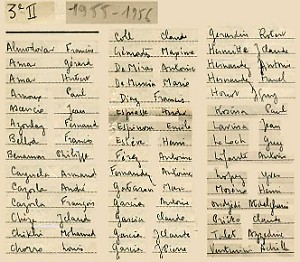 3e II 1955-1956
Almodovar Francis
Ama Gérard
Ama Hubert
Amouyo Paul
Ascencio Jean
Azoulay Fernand
Bellod Francis
Benamou Philippe
Cayuela Armand
Cazorla André
Cazorla François
Chiza J.Claude
Chikhi Mohamed
Chorro Louis
Coll Claude
Démonts Maxime
De Miras Antoine
De Murcia Mario
Diaz Francis
Espinosa André
Espinosa Emile
Estève Henri
Férez Antoine
Fernandez Antoine
Gabarron Marc
Garcia Antoine
Garcia Claude
Garcia J.Claude
Garcia J.Pierre
Gerardin Robert
Hermitte J.Claude
Hernandez Antoine
Hernandez Manuel
Honot Guy
Kroïna Paul
Lavina Jean
Le Loch Guy
Lifante Antoine
Lopez Yves
Moréno Henri
Oudjedi Abdelghani
Quiéro Claude
Tilet Azzedine
Ventura Achille